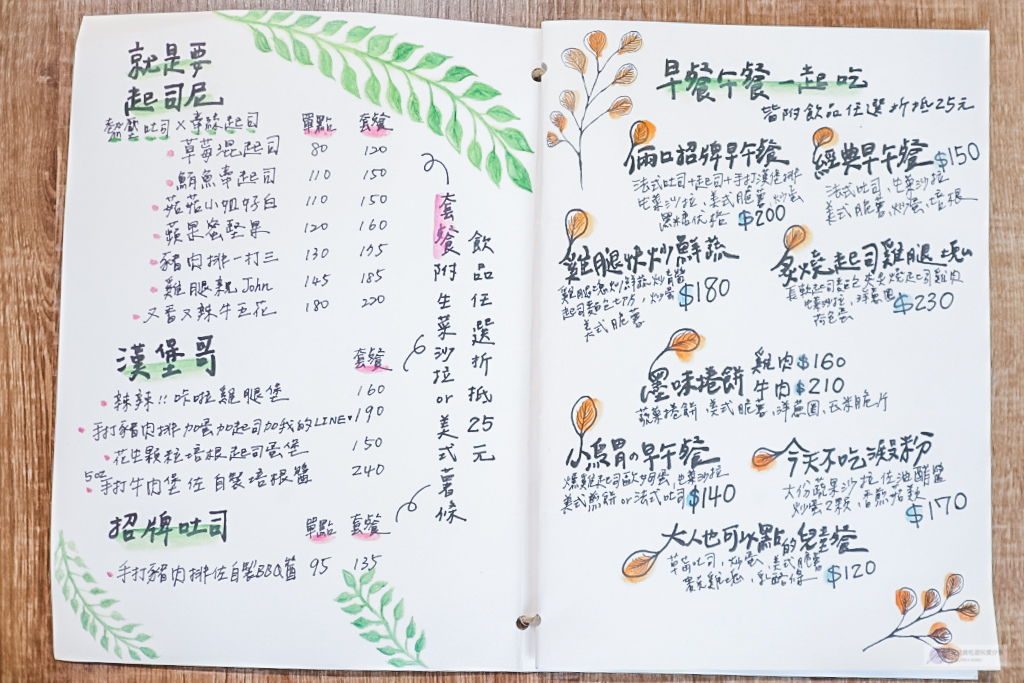 就是要
起司尼
熱壓吐司×牽絲起司 單點 套餐
草莓混起司 80 120
鮪魚牽起司 110 150
菇菇小姐好白 110 150
蘋果蜜堅果 120 160
豬肉排一打三 130 175
雞腿親John 145 185
又香又辣牛五花 180 220
漢堡哥 套餐
辣辣!!咔啦雞腿堡 160
手打豬肉排加蛋加起司加我的LINE♥ 190
花生顆粒培根起司蛋堡 150
5oz手打牛肉堡佐自製培根醬 240
招牌吐司 單點 套餐
手打豬肉排佐自製BBQ醬 95 135
套餐附生菜沙拉or美式薯條
飲品任選折抵25元
早餐午餐一起吃
皆附飲品任選折抵25元
倆口招牌早午餐
法式吐司+起司+手打漢堡排
生菜沙拉,美式脆薯,炒蛋
$200
經典早午餐 $150
法式吐司,生菜沙拉
美式脆薯,炒蛋,培根
雞腿快炒鮮蔬
$180
美式脆薯
炙燒起司雞腿塊
$230
荷包蛋
墨味捲餅 雞肉$160
牛肉$210
蔬菜捲餅,美式脆薯,洋蔥圈,玉米脆片
小鳥胃の早午餐
爆雞起司歐姆蛋,生菜沙拉
美式煎餅or法式吐司 $140
今天不吃澱粉
大份蔬果沙拉佐油醋醬
炒蛋2顆,香煎菇穀
$170
大人也可以點的兒童餐
草莓吐司,炒蛋,美式脆薯
$120